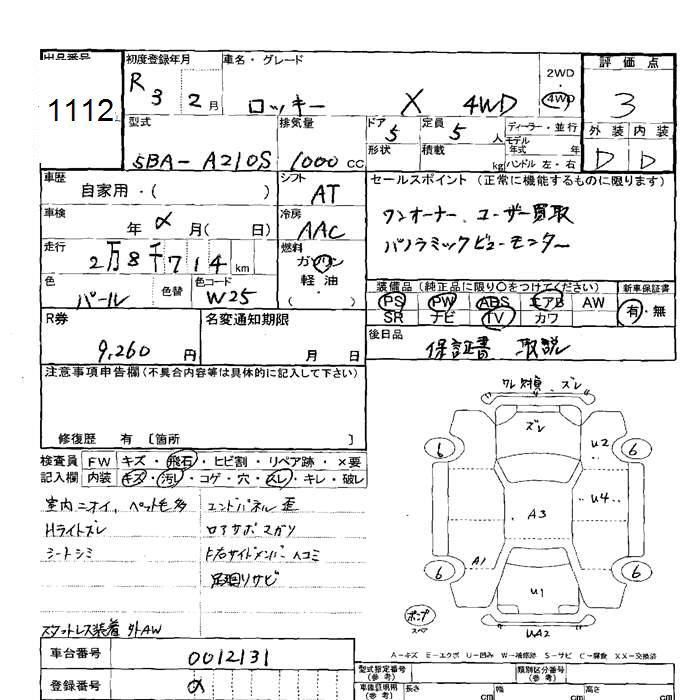 出品番号
1112
初度登録年月
R 3 2月
車名・グレード
ロッキー X 4WD
2WD
・
4WD
評価点
3
外装 内装
D D
型式
5BA-A210S
排気量
1000 CC
ドア 5
定員 5 人
形状
積載 kg
ディーラー・並行
モデル年式 年
ハンドル 左・右
車歴
自家用・( )
シフト
AT
車検
年 月( 日)
冷房
AAC
走行
2万8千714 km
燃料
ガソリン
軽・油
( )
色
パール
色替
色コード
W25
セールスポイント(正常に機能するものに限ります)
ワンオーナー、ユーザー買取
パノラミックビューモニター
装備品(純正品に限り○をつけてください)
PS PW ABS エアB AW
SR ナビ TV カワ
新車保証書
有・無
R券
9,260 円
名変通知期限
月 日
後日品
保証書 取説
注意事項申告欄(不具合内容等は具体的に記入して下さい)
修復歴 有 [箇所 ]
検査員 FW キズ・飛石・ヒビ割・リペア跡・×要
記入欄 内装 キズ・汚レ・コゲ・穴・スレ・キレ・破レ
室内ニオイ、ペット毛多
Hライトズレ
シートシミ
エンドパネル歪
ロアサポマガリ
下右サイドメンバーヘコミ
足廻りサビ
スタットレス装着 外AW
ズレ
ズレ
6 U2 6
U4
A3
A1
6 U1 6
UA2
A-キズ E-エクボ U-凹み W-補修跡 S-サビ C-腐食 XX-交換済
車台番号
0012131
登録番号
型式指定番号
(参考)
類別区分番号
(参考)
車検証明用
(参考)
長さ cm
幅 cm
高さ cm